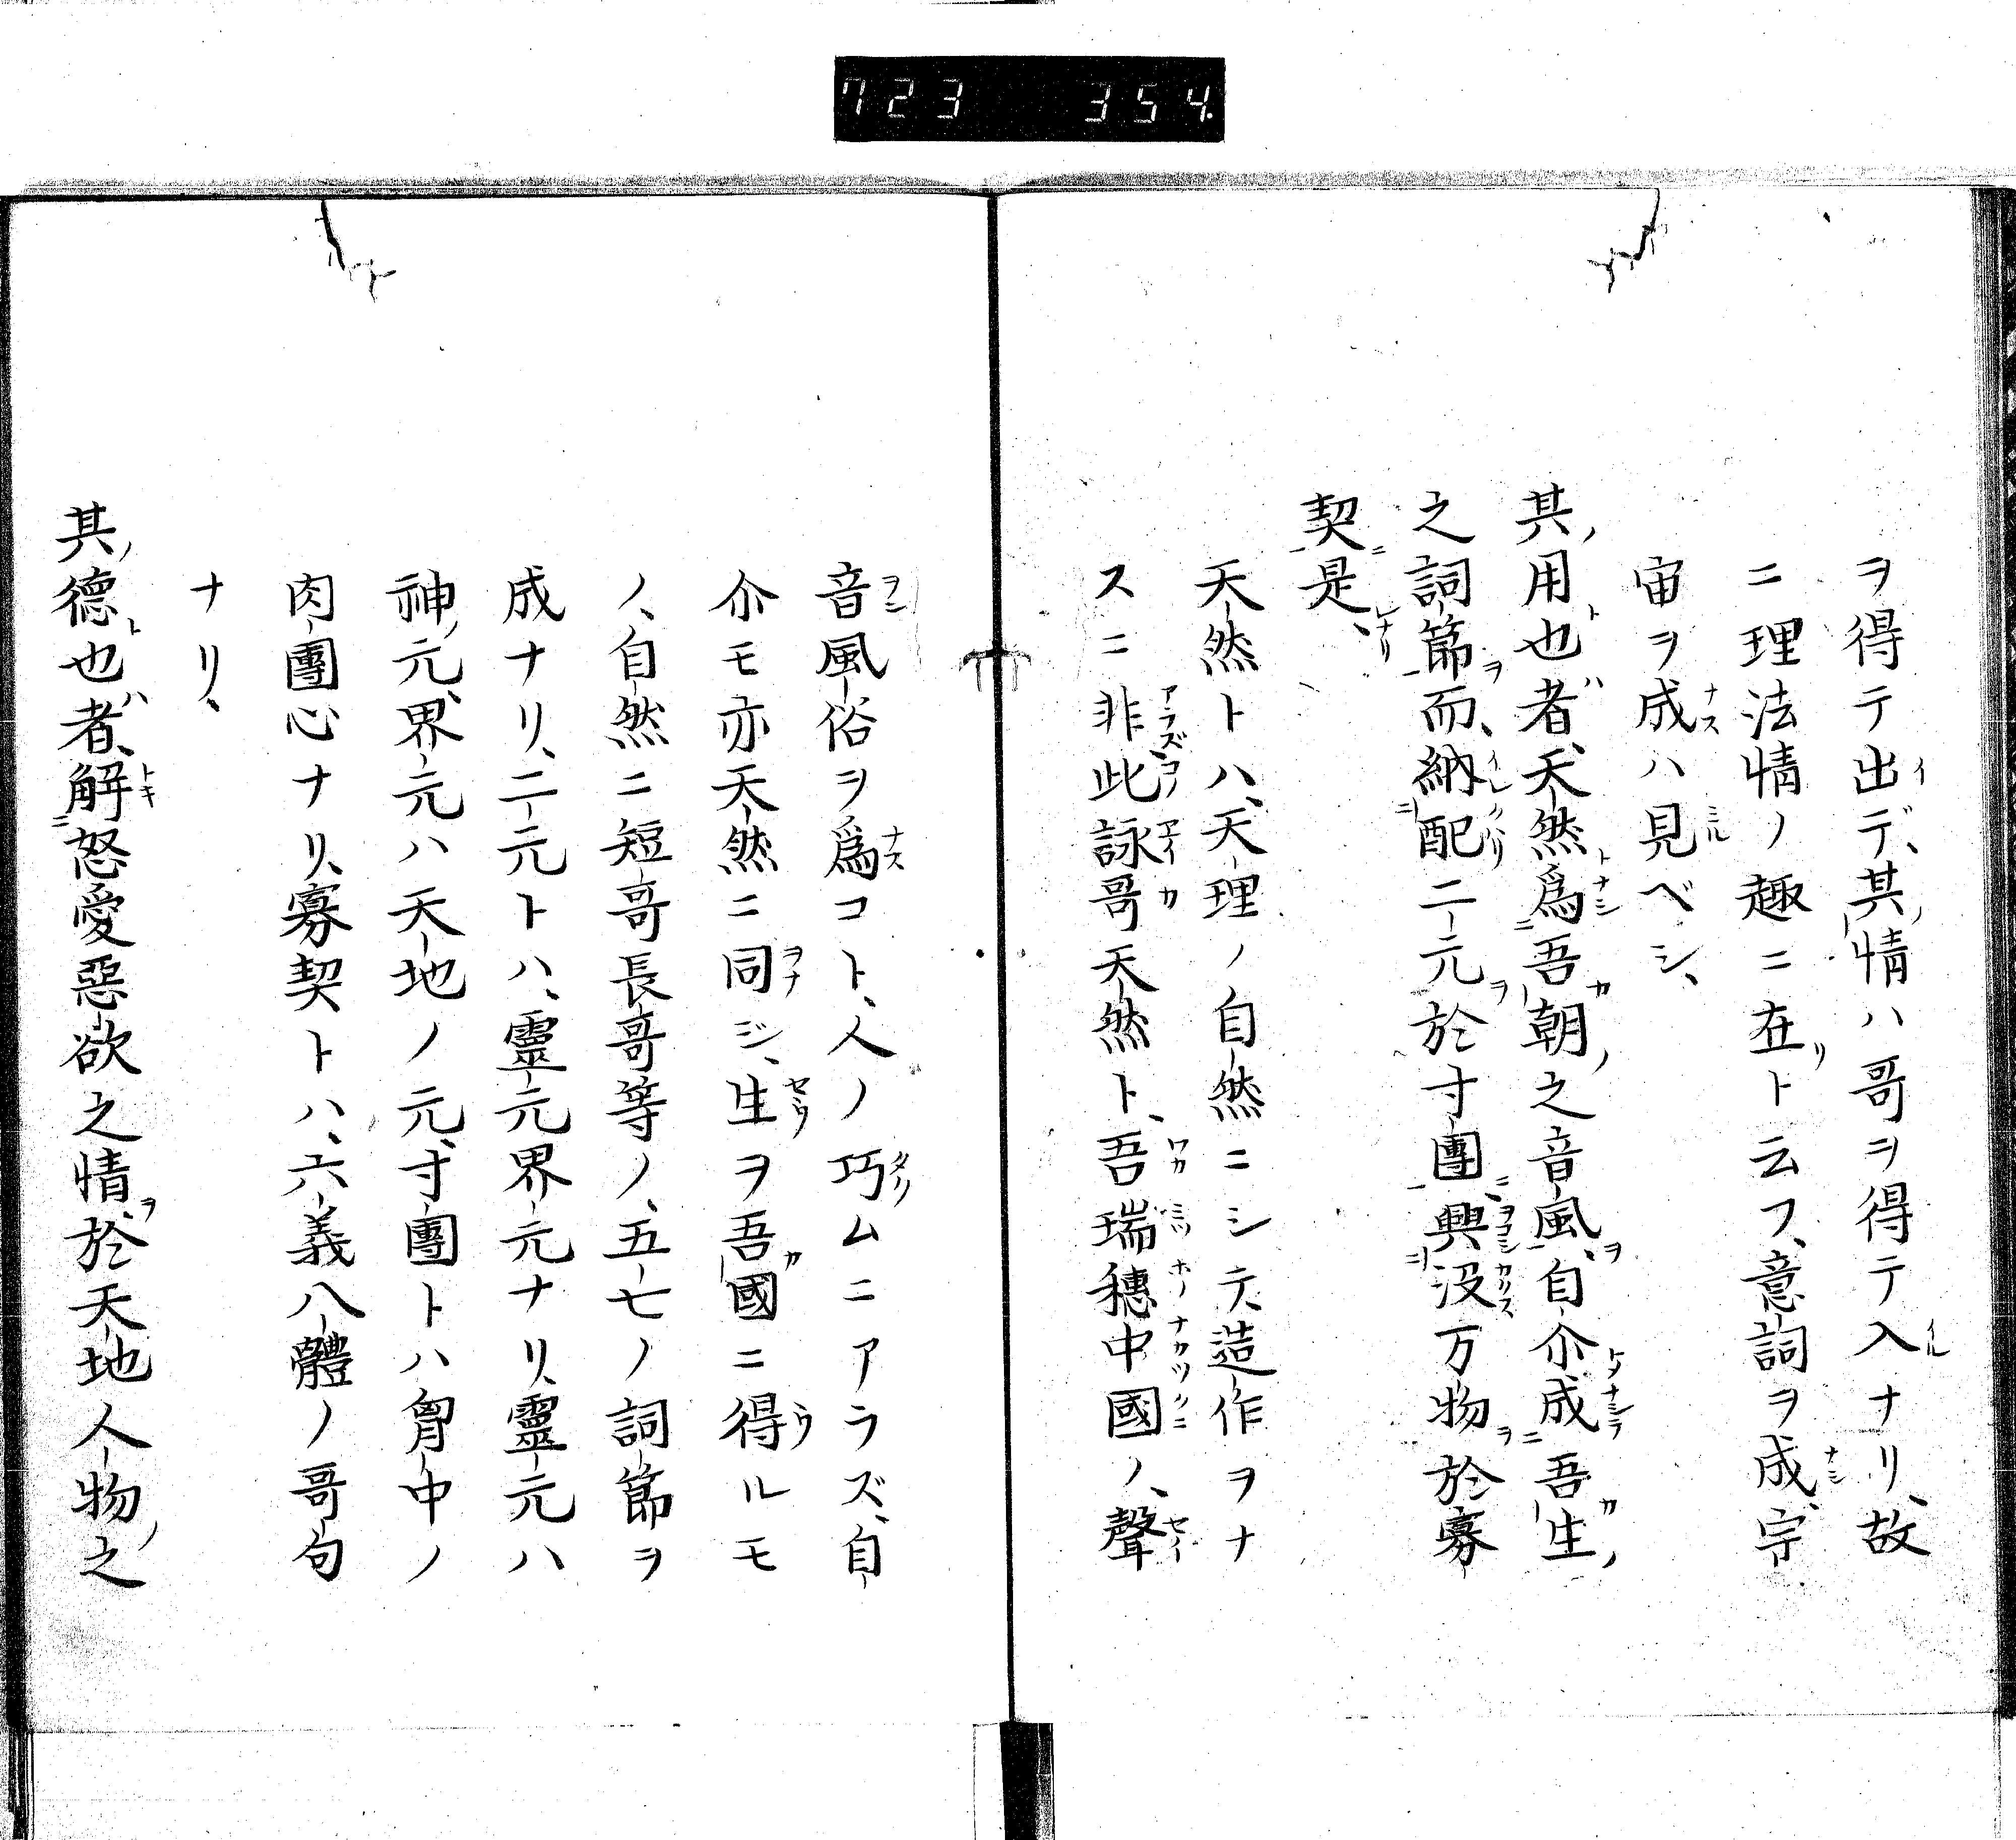 723 354
ヲ得テ出デ、其情ハ哥ヲ得テ入ナリ、故
ニ理法情ノ趣ニ在ト云フ、意詞ヲ成、宇
宙ヲ成ハ見ベシ、
其用也者、天然為吾朝之音風、自尒成吾生
之詞節而、納配二元於寸團、興没万物於寡
契是、
天然トハ、天理ノ自然ニシテ、造作ヲナ
スニ非、此詠哥天然ト、吾瑞穗中國ノ、聲
音風俗ヲ爲コト、人ノ巧ムニアラズ、自
尒モ亦天然ニ同ジ、生ヲ吾國ニ得ルモ
ノ、自然ニ短哥長哥等ノ、五七ノ詞節ヲ
成ナリ、二元トハ、靈元界元ナリ、靈元ハ
神元、界元ハ天地ノ元、寸團トハ胷中ノ
肉團心ナリ、寡契トハ、六義八體ノ哥句
ナリ、
其德也者、解怒愛惡欲之情、於天地人物之